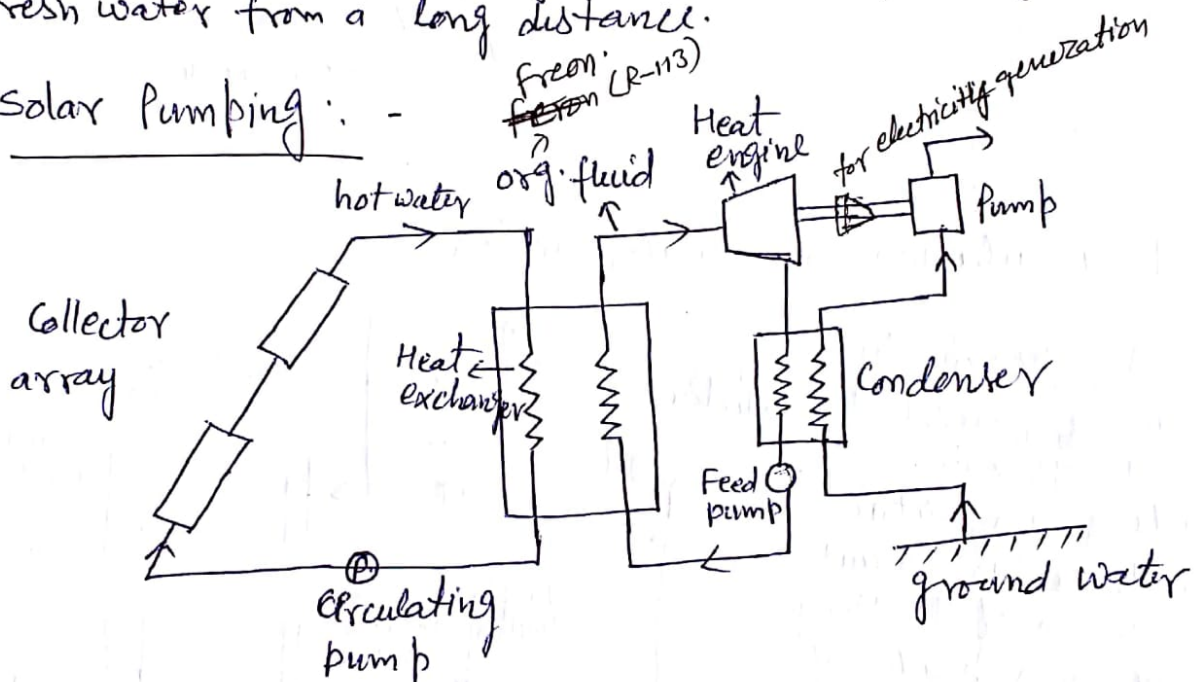 resh water from a long distance.
Solar Pumping : -
Freon (R-113)
org. fluid
hot water
Heat
engine
for electricity generation
Pump
Collector
array
Heat
exchanger
Condenser
Feed
pump
P
Circulating
pump
ground water